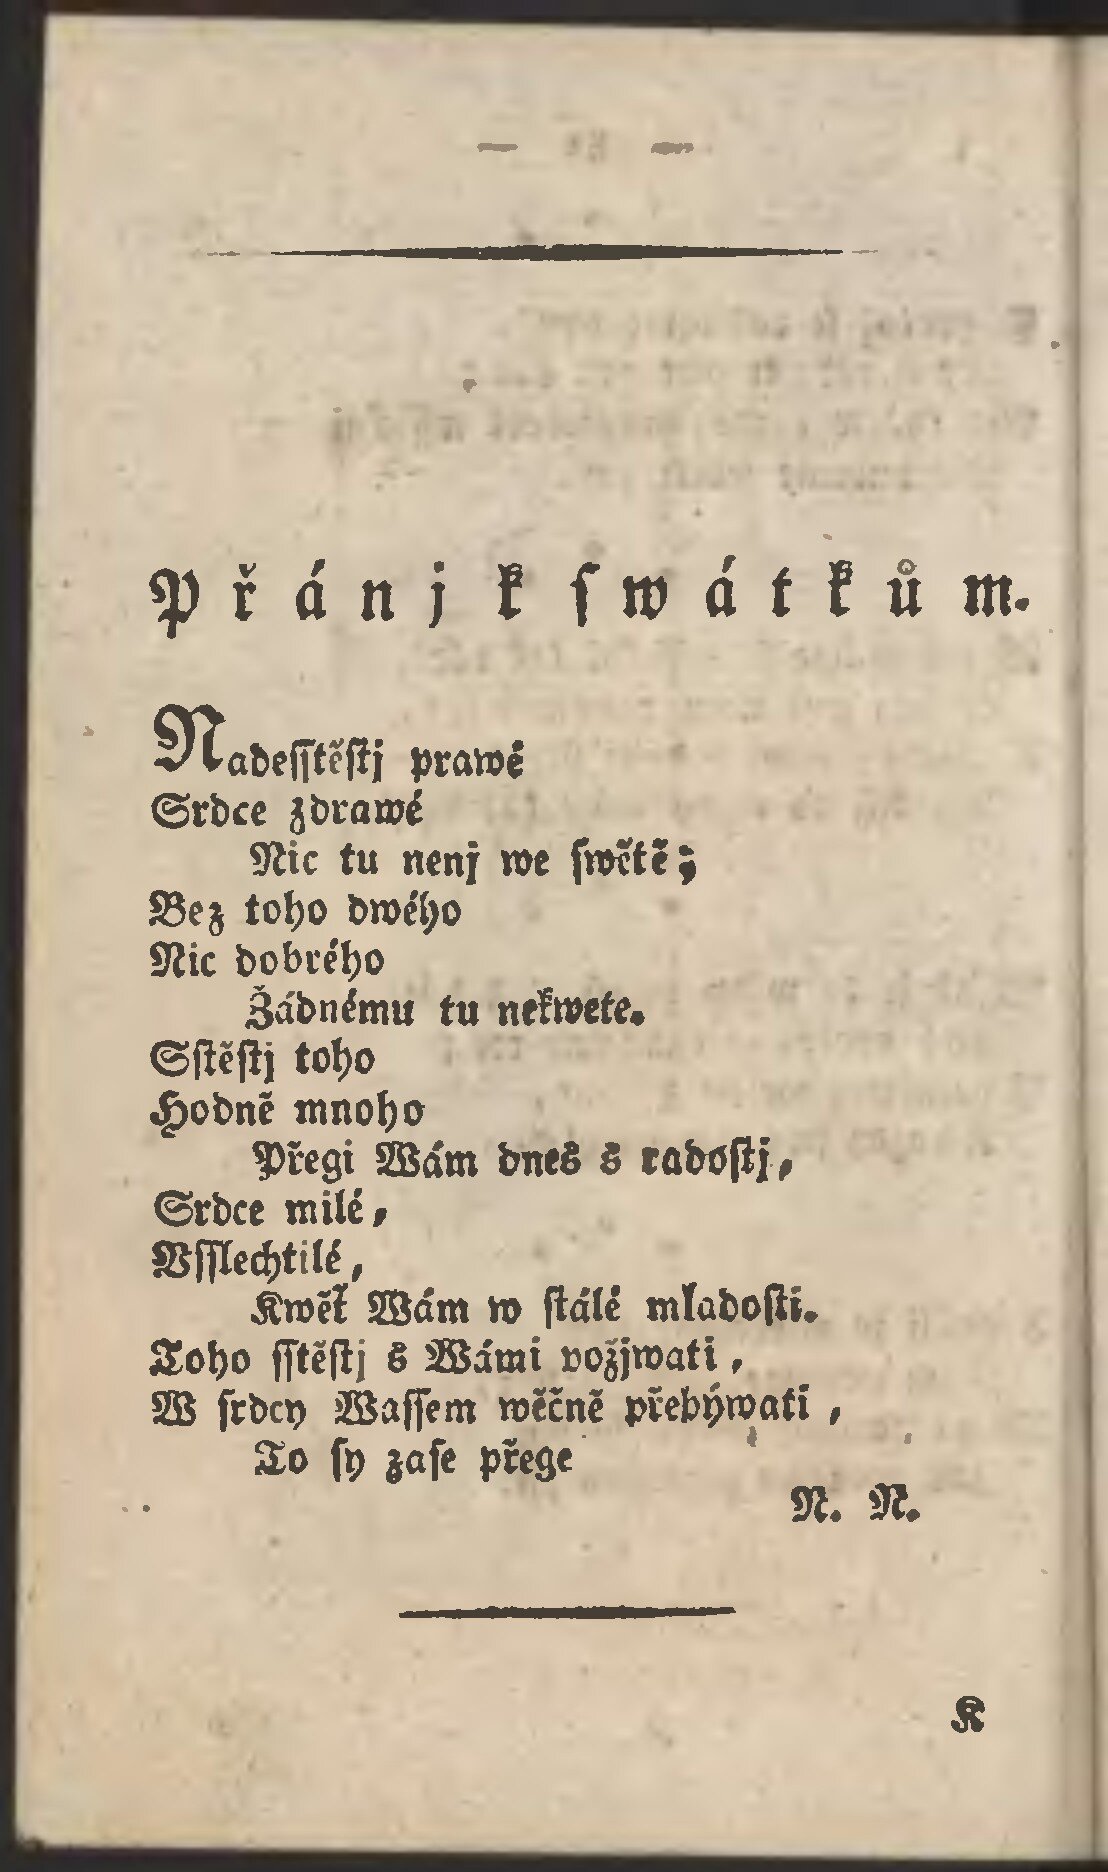 Přánj k ſwátkům.
Nadeſſtěſtj prawé
Srdce zdrawé
Nic tu nenj we ſwětě;
Bez toho dwého
Nic dobrého
Žádnému tu nekwete.
Sſtěſtj toho
Hodně mnoho
Přegi Wám dnes s radoſtj,
Srdce milé,
Vſſlechtilé,
Kwět Wám w ſtálé mladoſti.
Toho ſſtěſtj s Wámi vožjwati,
W ſrdcy Waſſem wěčně přebýwati,
To ſy zaſe přege
N. N.
K